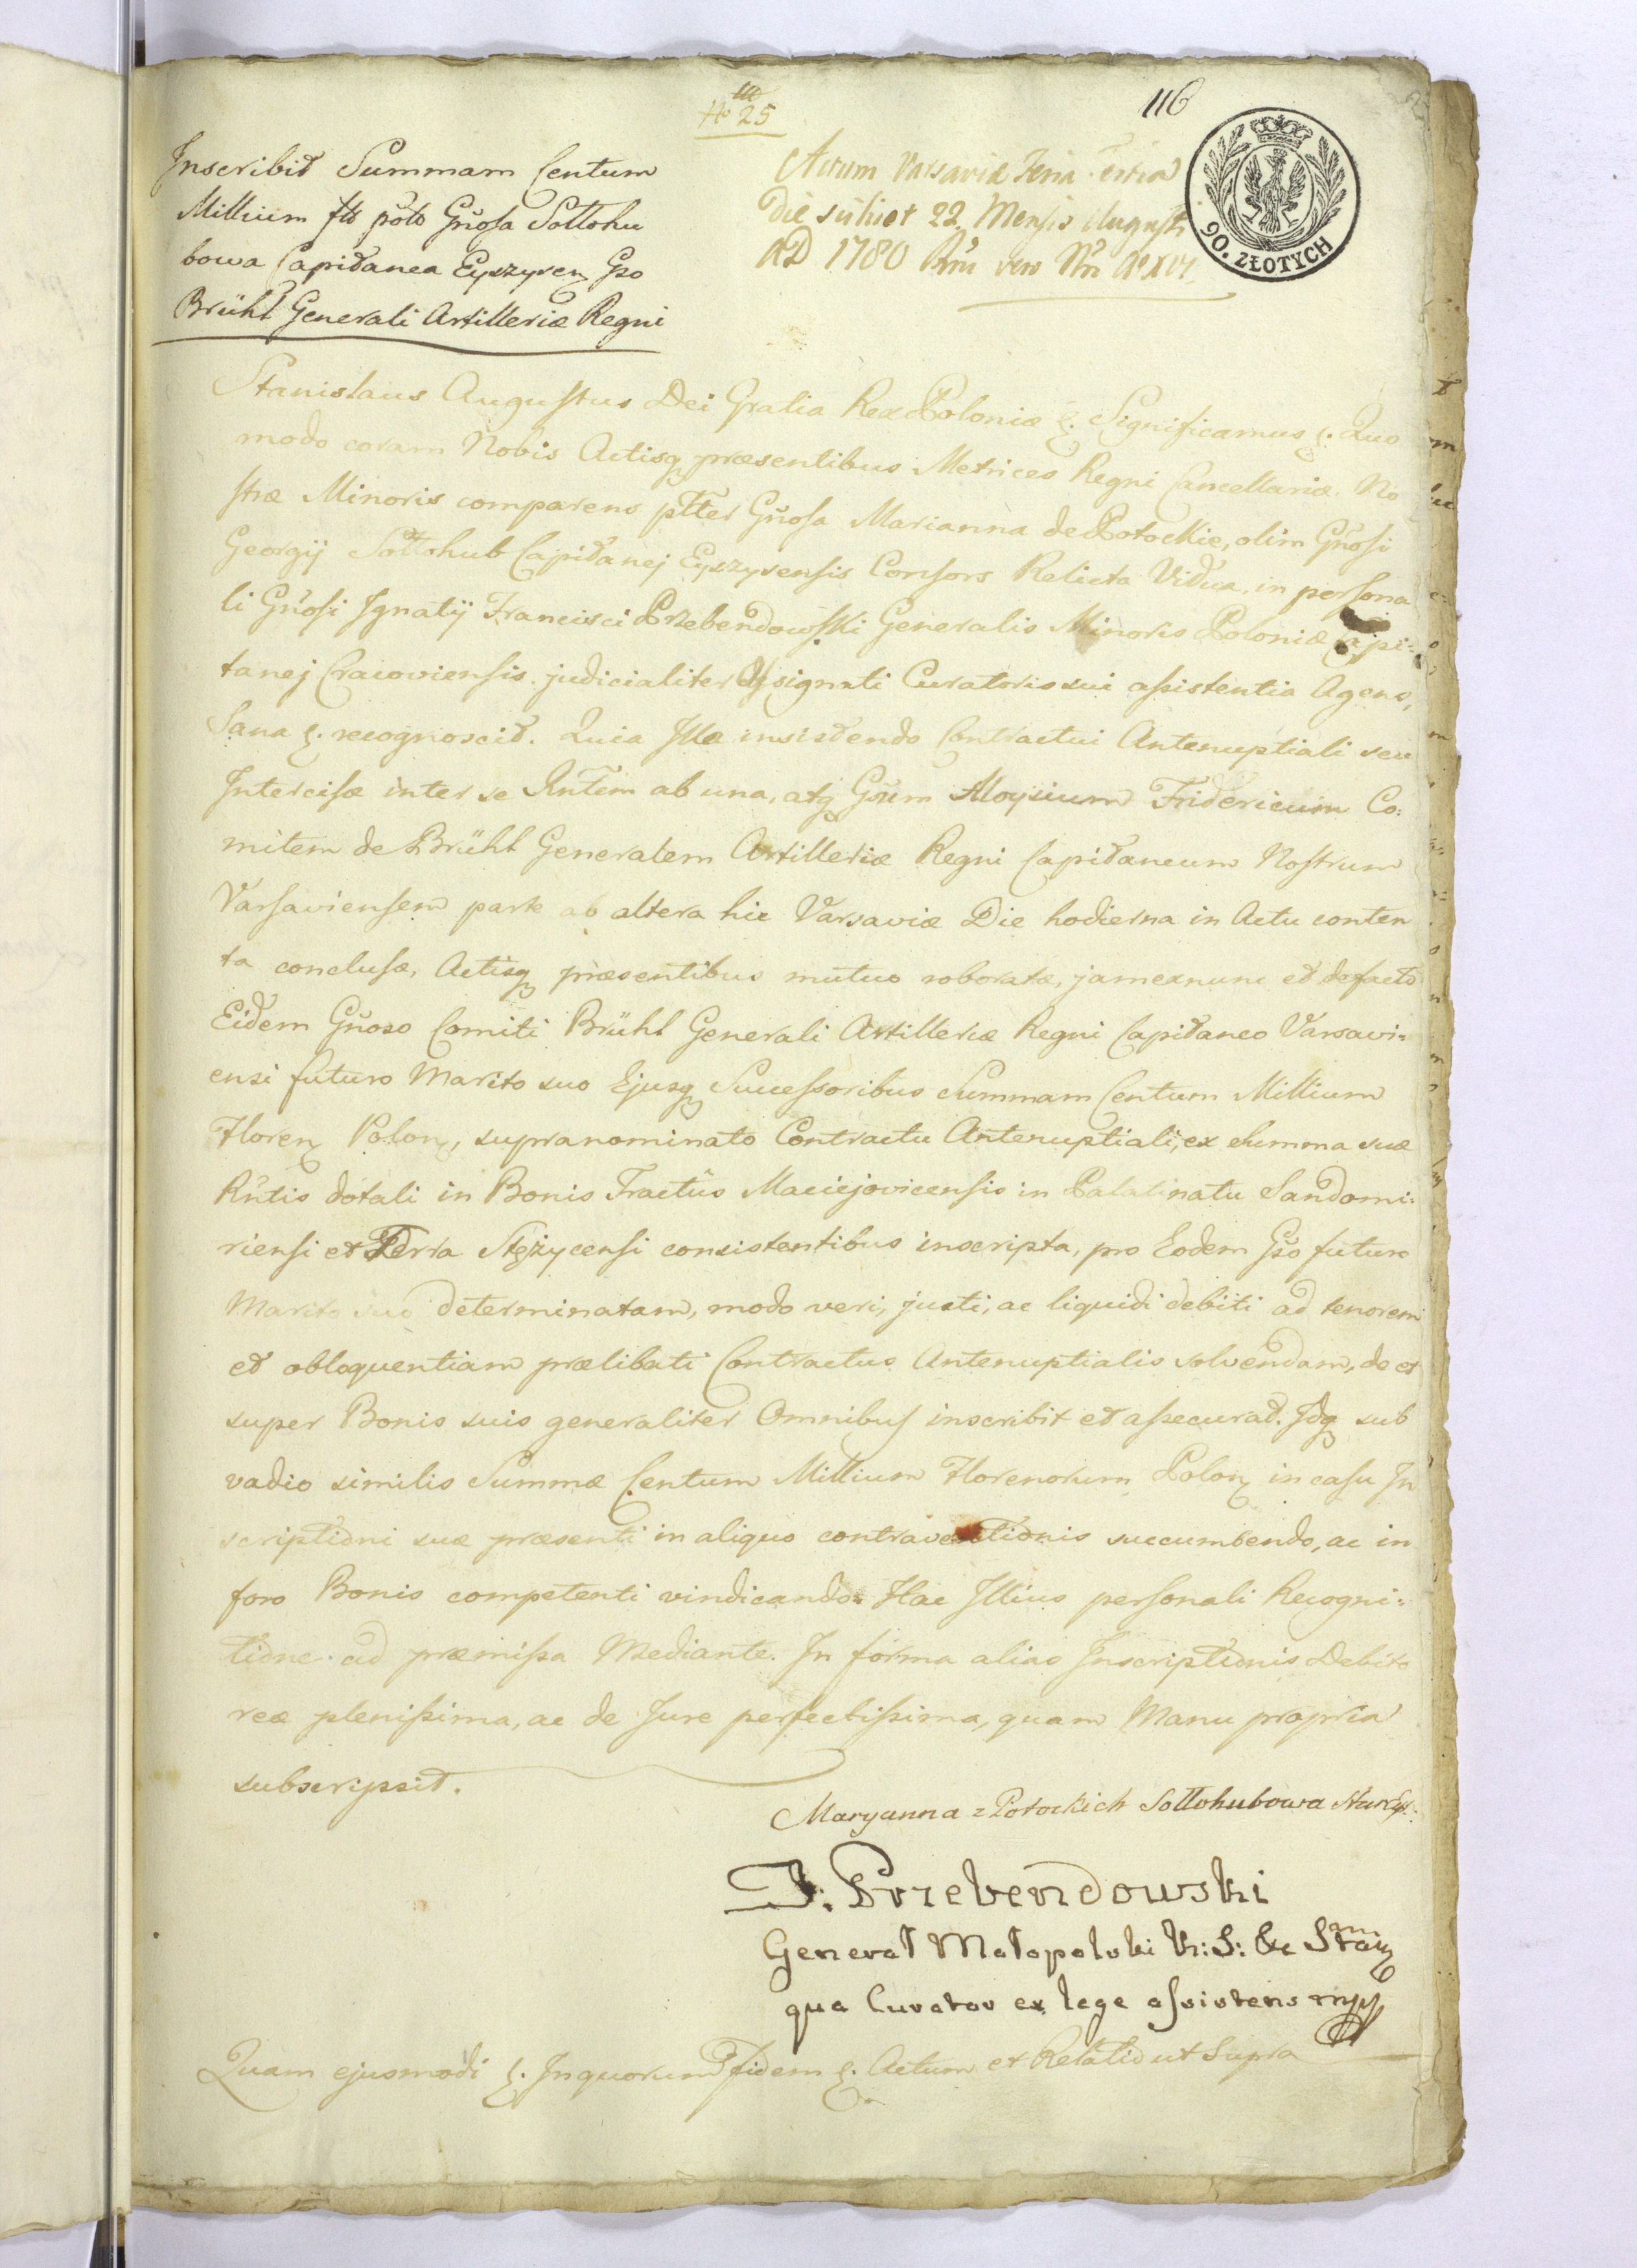 No 25
116
90. ZŁOTYCH
Inscribit Summam Centum
Millium fls polo Gnosa Sołłohu
bowa Capitanea Eyszyscen Gso
Brühl Generali Artilleriæ Regni
Actum Varsaviæ Feria tertia
Die scilicet 22. Mensis Augusti
AD 1780 Rni vero Nri Ao XVI
Stanislaus Augustus Dei Gratia Rex Poloniæ &. Significamus &. Quo
modo coram Nobis Actisq præsentibus Metrices Regni Cancellariæ No
stræ Minoris comparens plter Gnosa Marianna de Potockie, olim Gnosi
Georgij Sołłohub Capitanej Eyszysensis Consors Relicta Vidua, in persona
li Gnosi Ignatij Francisci Przebendowski Generalis Minoris Poloniæ Capi:
tanej Cracoviensis judicialiter Assignati Curatoris sui assistentia Agens,
Sana &. recognoscit. Quia Illa insistendo Contractui Antenuptiali seu
Intercisæ inter se Rntem ab una, atq Gsum Aloysium Fridericum Co:
mitem de Brühl Generalem Artilleriæ Regni Capitaneum Nostrum
Varsaviensem parte ab altera hic Varsaviæ Die hodierna in Actu conten
ta conclusæ, Actisq præsentibus mutuo roboratæ, jamexnunc et defacto
Eidem Gnoso Comiti Brühl Generali Artilleriæ Regni Capitaneo Varsavi:
ensi futuro Marito suo Ejusq Successoribus Summam Centum Millium
Floren Polon, supranominato Contractu Antenuptiali, ex Summa suæ
Rntis dotali in Bonis Tractûs Maciejovicensis in Palatinatu Sandomi:
riensi et Terra Stężycensi consistentibus inscripta, pro Eodem Gso futuro
Marito suo determinatam, modo veri, justi, ac liquidi debiti ad tenorem
et obloquentiam prælibati Contractus Antenuptialis solvendam, de et
super Bonis suis generaliter Omnibus inscribit et assecurat. Idq sub
vadio similis Summæ Centum Millium Florenorum Polon in casu In
scriptioni suæ præsenti in aliquo contraventionis succumbendo, ac in
foro Bonis competenti vindicando. Hac Illius personali Recogni:
tione ad præmissa Mediante. In forma alias Inscriptionis Debito
reæ plenissima, ac de Jure perfectissima, quam Manu propria
subscripsit.
Maryanna z Potockich Sołłohubowa
J: Przebendowski
Generał Małopolski K: S: &c
qua Curator ex lege assistens mpp
Quam ejusmodi &. In quorum fidem &. Actum et Relatio ut Supra